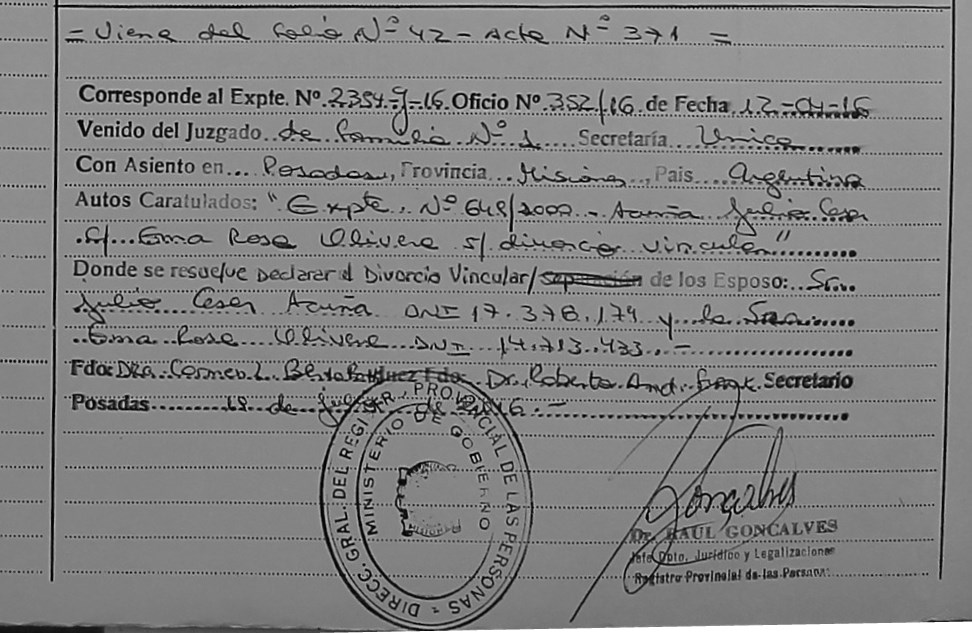 = Viene del folio Nº 42 - Acta Nº 371 =
Corresponde al Expte. Nº 2354-g-16 Oficio Nº 352/16 de Fecha 12-04-16
Venido del Juzgado de Familia Nº 1 Secretaría Unica
Con Asiento en Posadas, Provincia Misiones, Pais Argentina
Autos Caratulados: "Expte. Nº 648/2002 - Acuña Julio Cesar
C/ Ema Rosa Olivera s/ divorcio vincular"
Donde se resuelve Declarar el Divorcio Vincular/Separación de los Esposo: Sr.
Julio Cesar Acuña DNI 17.378.174 y la Sra.
Ema Rosa Olivera DNI 14.713.433.-
Fdo: Dra. Carmen L. Fdo: Dr. Roberto And. Secretario
Posadas 18 de de 2016.-
DIRECC. GRAL. DEL REGISTR. PROVINCIAL DE LAS PERSONAS
MINISTERIO DE GOBIERNO
Goncalves
Dr. RAUL GONCALVES
Jefe Dpto. Jurídico y Legalizaciones
Registro Provincial de las Personas